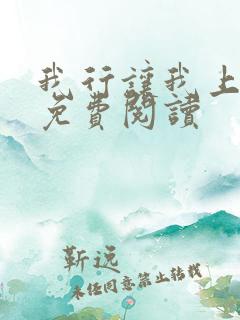 我行讓我上
免費閱讀
靳远
未经同意禁止转载